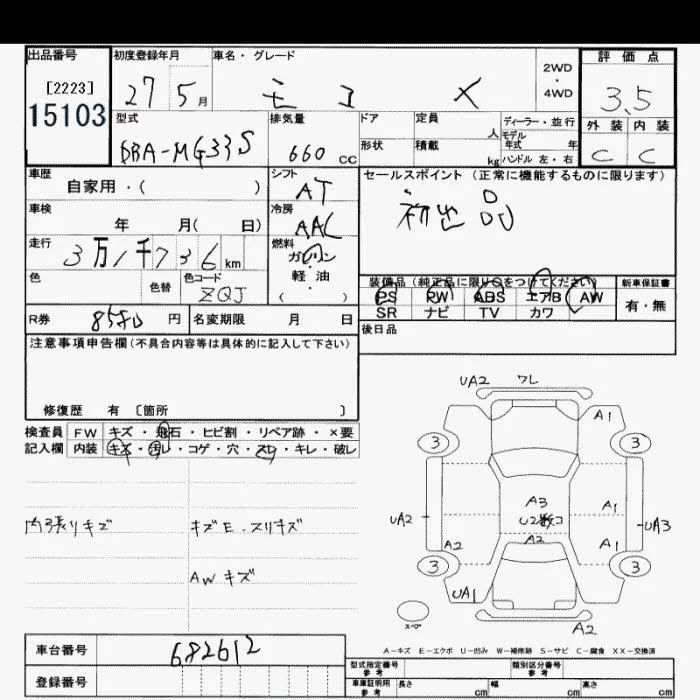 出品番号
[2223]
15103
初度登録年月
27 5 月
車名・グレード
モコ X
2WD
・
4WD
評価点
3.5
外装 内装
C C
型式
DBA-MG33S
排気量
660 cc
ドア
定員
人
形状
積載
kg
ディーラー・並行
モデル
年式 年
ハンドル 左・右
車歴
自家用・( )
シフト
AT
車検
年 月( 日)
冷房
AAC
走行
3万1千736 km
燃料
ガソリン
・
軽油
( )
色
色替
色コード
ZQJ
セールスポイント (正常に機能するものに限ります)
初出品
装備品 (純正品に限り○をつけてください)
PS PW ABS エアB AW
SR ナビ TV カワ
新車保証書
有・無
R券
8580 円
名変期限 月 日
後日品
注意事項申告欄(不具合内容等は具体的に記入して下さい)
修復歴 有 〔箇所 〕
検査員
記入欄
FW キズ・飛石・ヒビ割・リペア跡・×要
内装 キズ・汚レ・コゲ・穴・スレ・キレ・破レ
内張りキズ
キズE・スリキズ
AWキズ
UA2 ワレ
A1
3 3
A3
U2数コ
A2
UA2
A1
UA3
A2
A1
3 3
UA1
A2
スペア
A-キズ E-エクボ U-凹み W-補修跡 S-サビ C-腐食 XX-交換済
車台番号
682612
登録番号
型式指定番号
参考
類別区分番号
参考
車庫証明用
参考
長さ cm 幅 cm 高さ cm